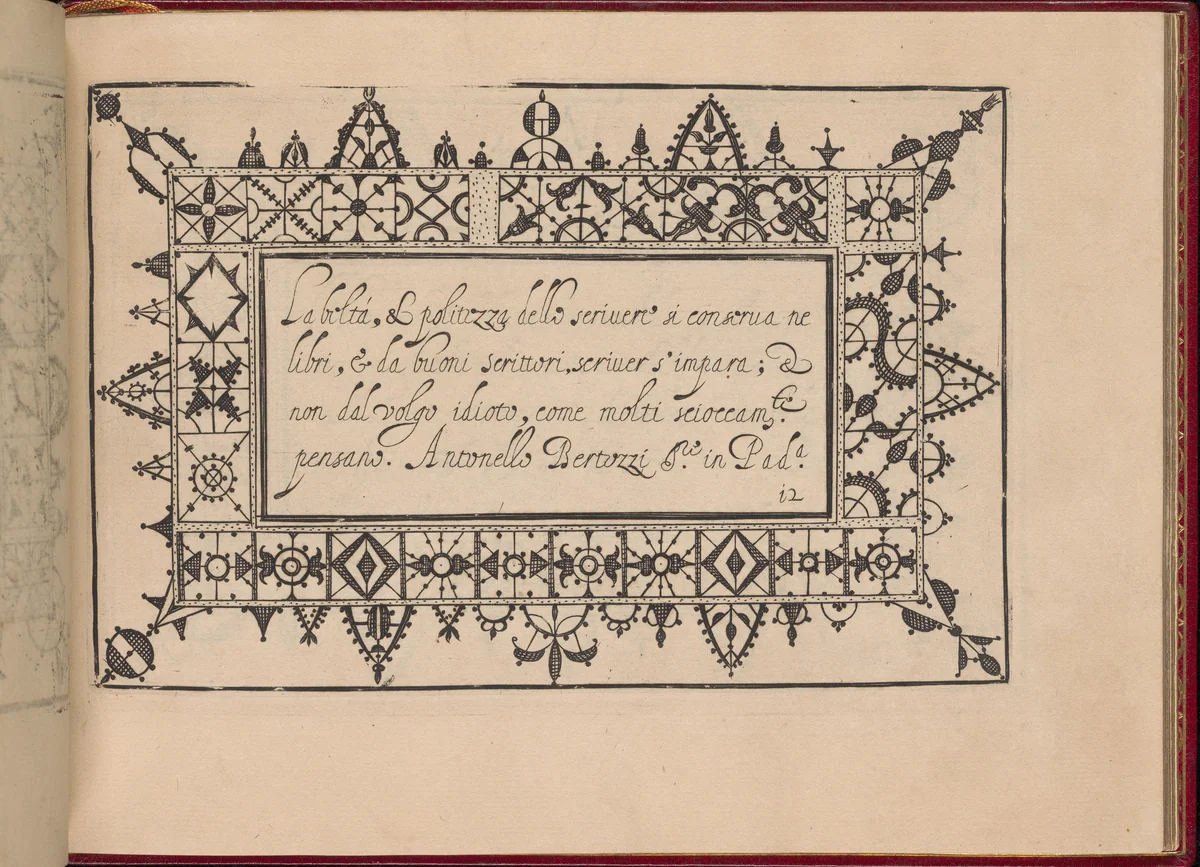 La beltá, & politezza dello scriuere si conserua ne
libri, & da buoni scrittori, scriuer s'impara; &
non dal volgo idioto, come molti scioccamte.
pensano. Antonello Bertozzi in Pada.
12